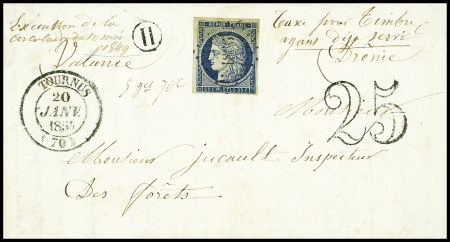 Exécution de la
circulaire du 10 mai
1849
Taxe pour Timbre
ayant déjà servi
H
REPUB. FRANC.
25 C POSTES 25 C
Valence
Drome
5 gr 70c
TOURNUS
20
JANV
1854
(70)
25
Monsieur
Monsieur Jucault Inspecteur
Des forêts